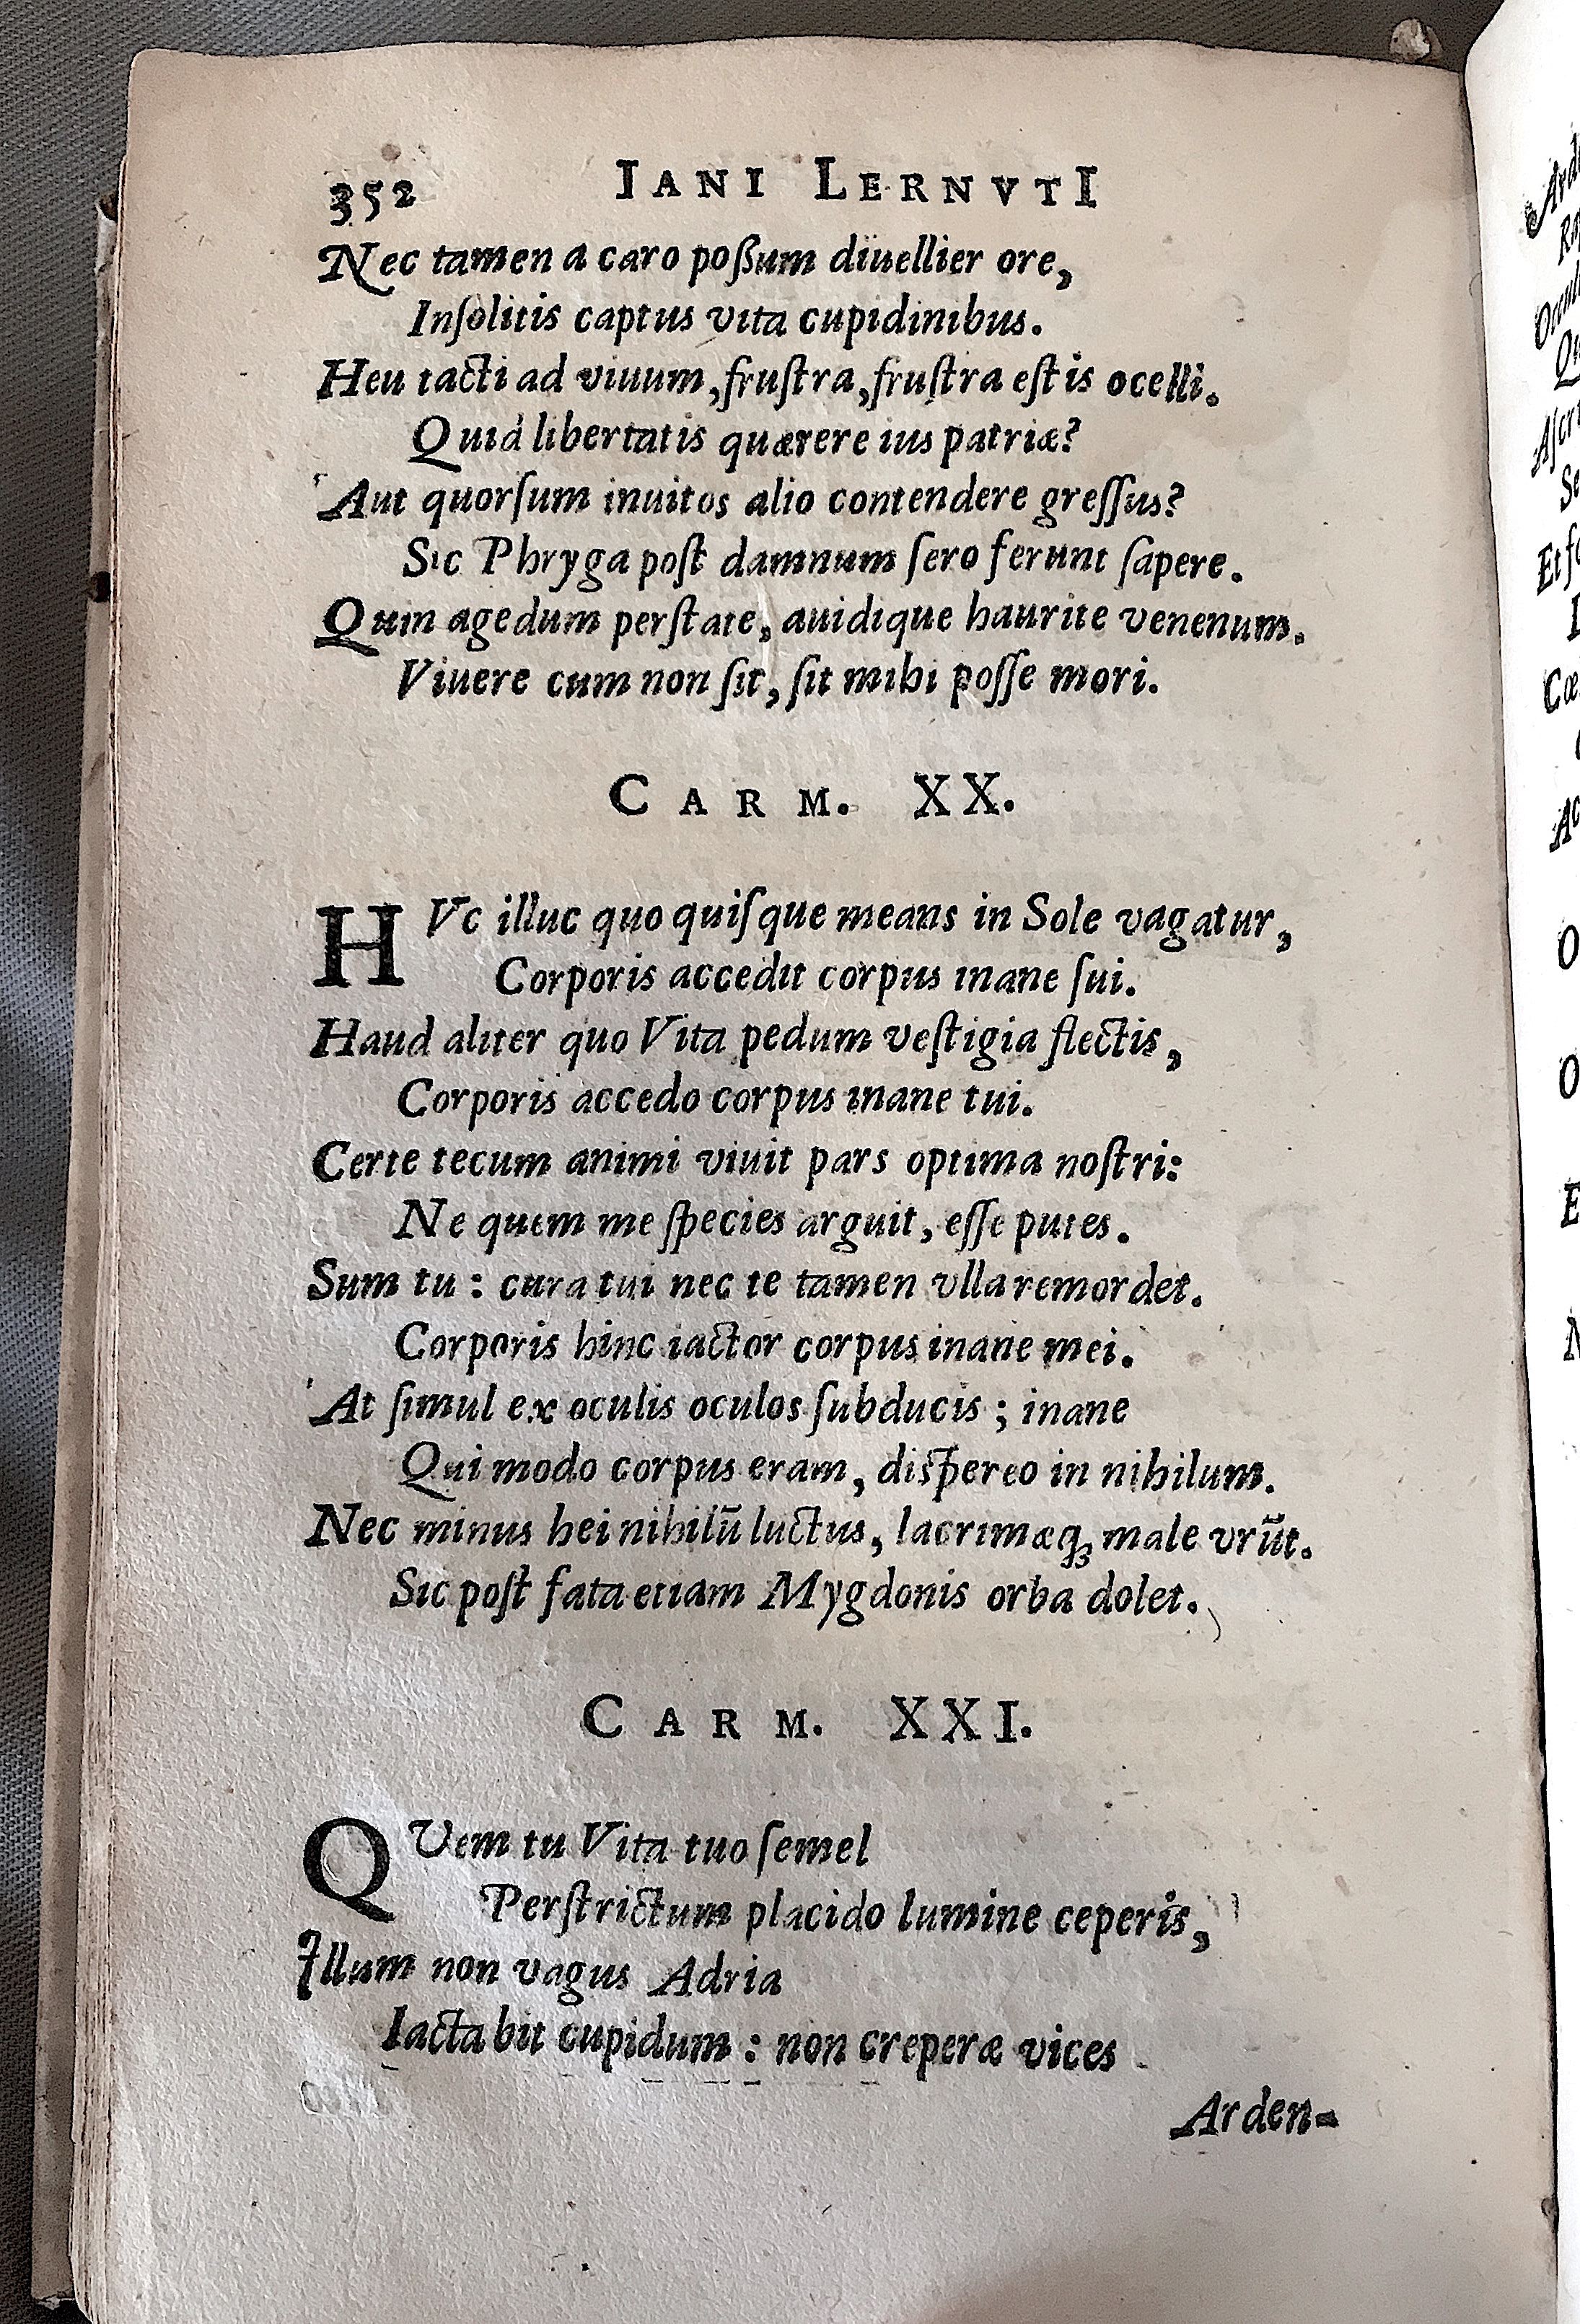 352 IANI LERNVTI
Nec tamen a caro poßum diuellier ore,
Inſolitis captus vita cupidinibus.
Heu tacti ad viuum, fruſtra, fruſtra eſtis ocelli.
Quid libertatis quærere ius patriæ?
Aut quorſum inuitos alio contendere greſſus?
Sic Phryga poſt damnum ſero ferunt ſapere.
Quin agedum perſtate, auidique haurite venenum.
Viuere cum non ſit, ſit mihi poſſe mori.
CARM. XX.
HVc illuc quo quiſque means in Sole vagatur,
Corporis accedit corpus inane ſui.
Haud aliter quo Vita pedum veſtigia flectis,
Corporis accedo corpus inane tui.
Certe tecum animi viuit pars optima noſtri:
Ne quem me ſpecies arguit, eſſe putes.
Sum tu: cura tui nec te tamen vlla remordet.
Corporis hinc iactor corpus inane mei.
At ſimul ex oculis oculos ſubducis; inane
Qui modo corpus eram, diſpereo in nihilum.
Nec minus hei nihilū luctus, lacrimæq; male vrūt.
Sic poſt fata etiam Mygdonis orba dolet.
CARM. XXI.
QVem tu Vita tuo ſemel
Perſtrictum placido lumine ceperis,
Illum non vagus Adria
Iactabit cupidum: non creperæ vices
Arden-